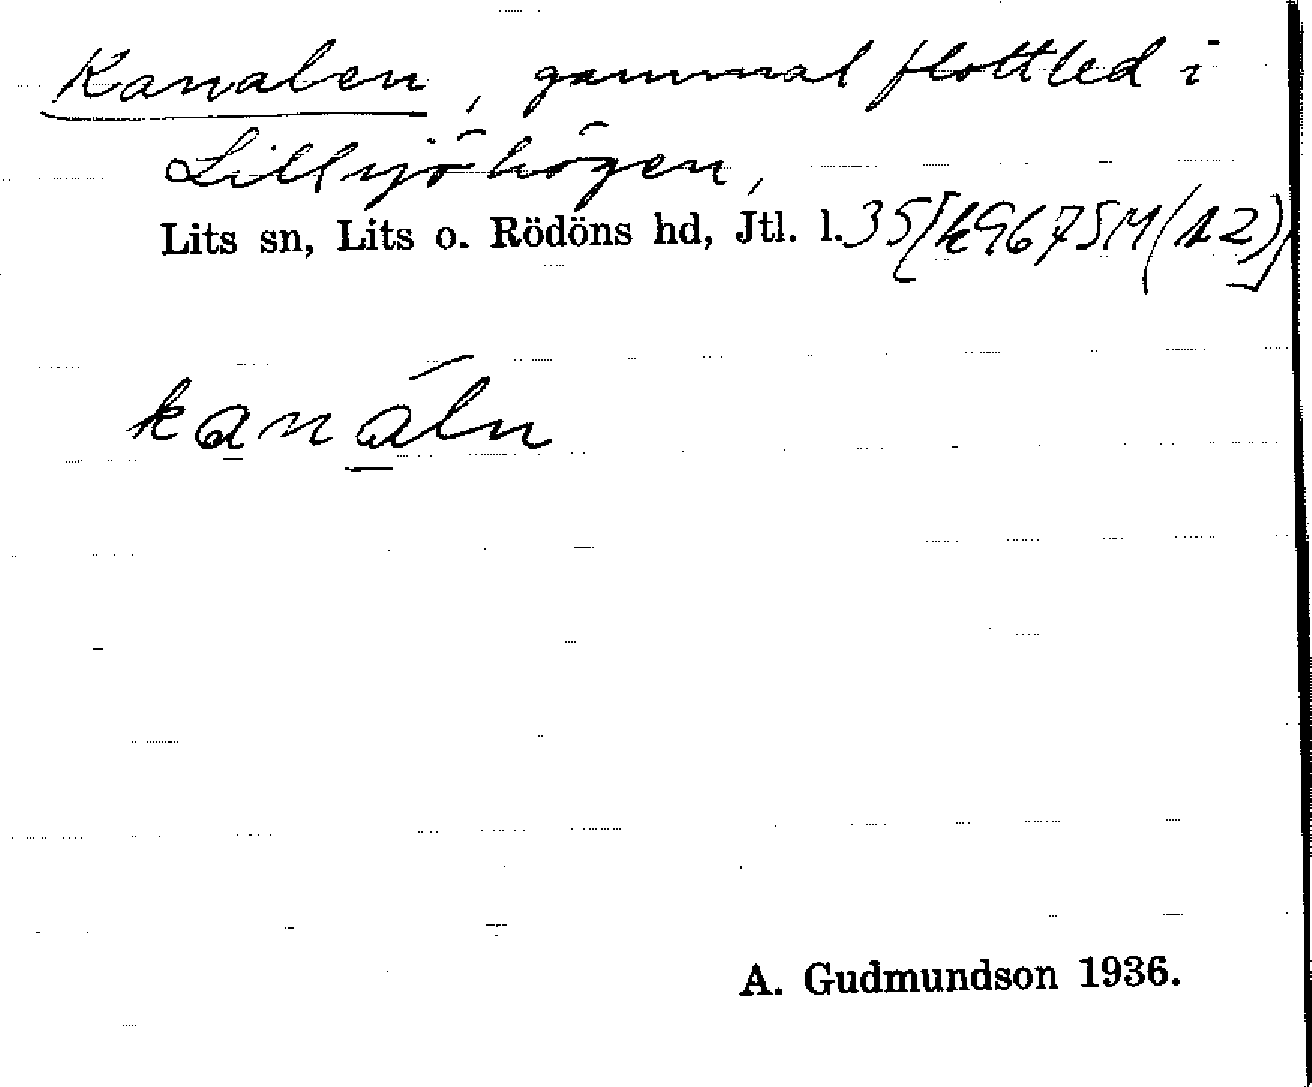 Kanalen, gammal flottled i
Lillsjöhögen,
Lits sn, Lits o. Rödöns hd, Jtl. l. 35
kanáln
A. Gudmundson 1936.